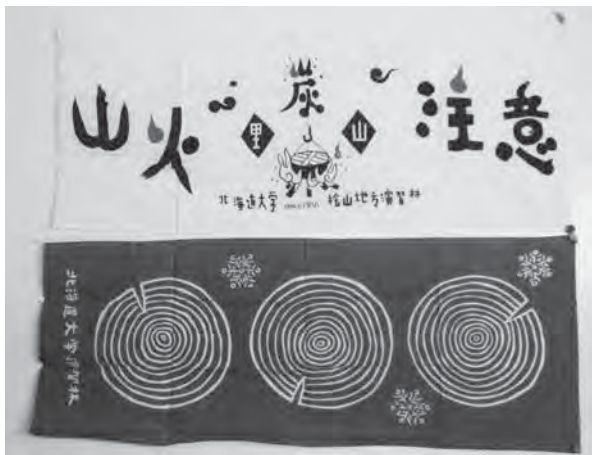 山火 炭 注意
里 山
北海道大学 since 桧山地方演習林
北海道大学